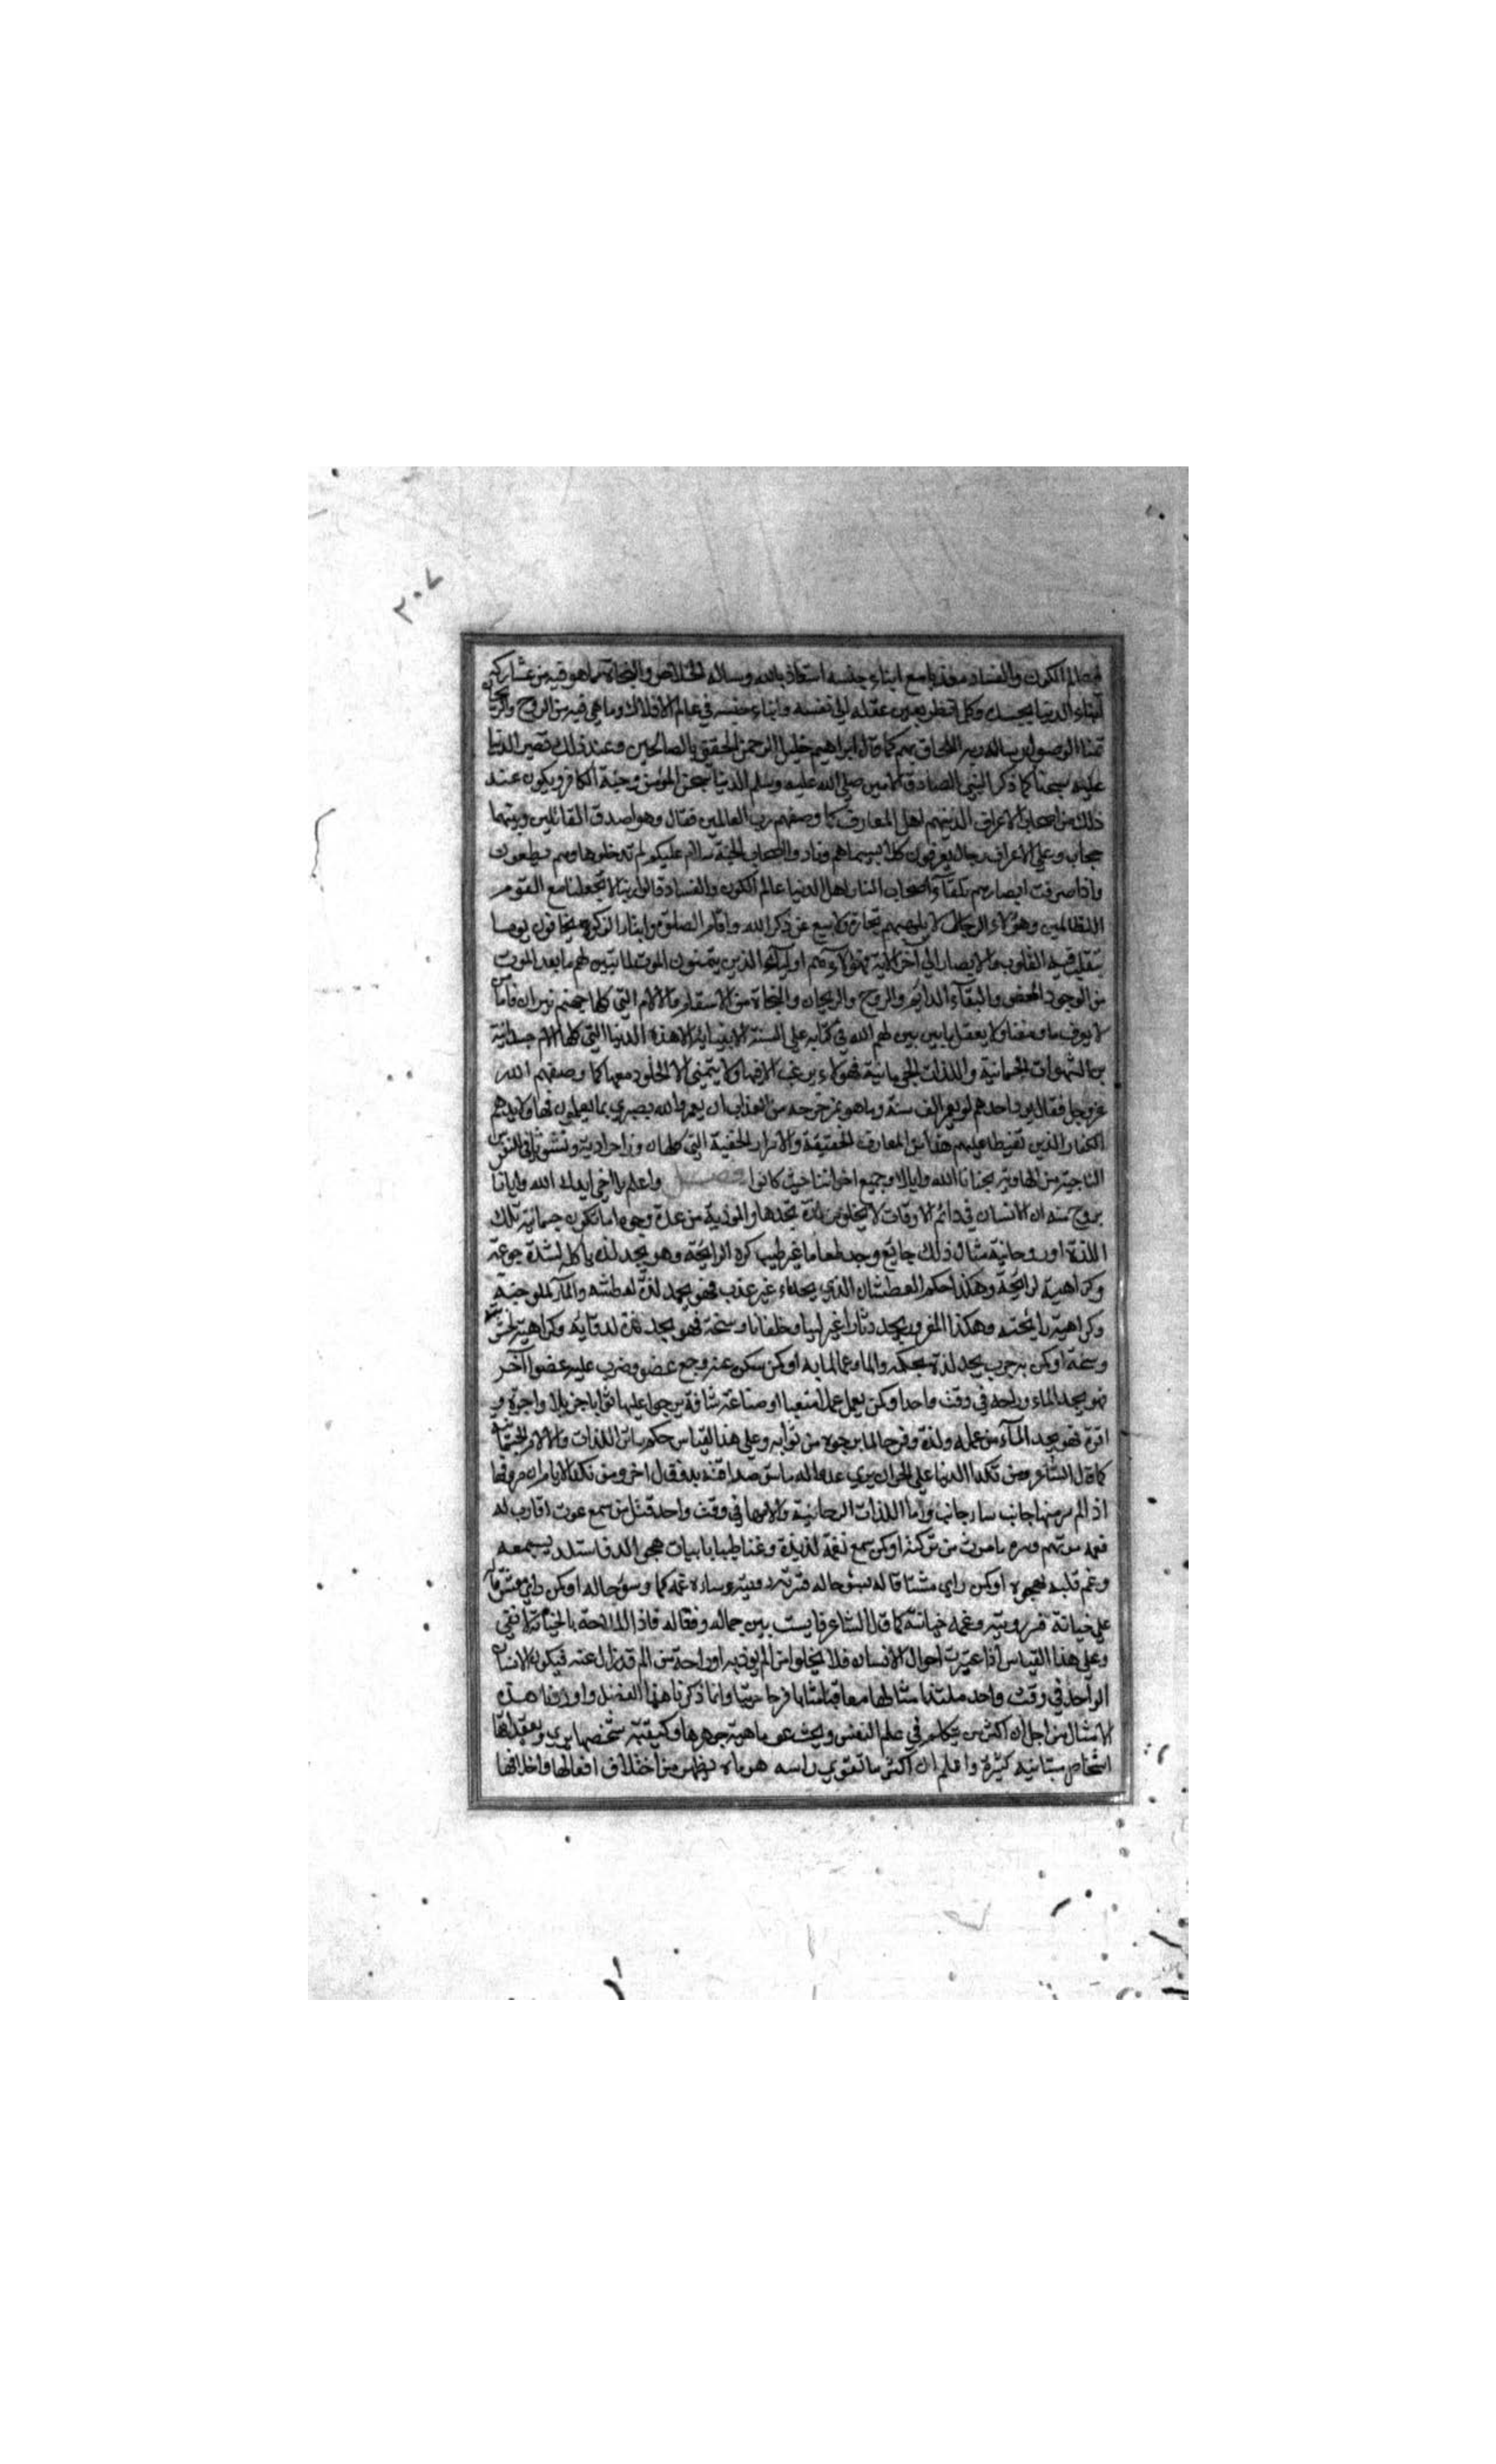 ٢٠٧
في عالم الكون والفساد معذبا مع ابناء جنسه استعاذ بالله وساله الخلاص والنجاة مما هو فيه من مشاركة
ابناء الدنيا بجسده وكلما نظر بعين عقله الى نفسه وابناء جنسه في عالم الافلاك وما هي فيه من الروح والريحان
تمنا الوصول وساله ربه اللحاق بهم كما قال ابراهيم خليل الرحمن الحقني بالصالحين وعند ذلك تصير الدنيا
عليه سجنا كما ذكر النبي الصادق الامين صلى الله عليه وسلم الدنيا سجن المؤمن وجنة الكافر ويكون عند
ذلك من اصحاب الاعراف الذينهم اهل المعارف كما وصفهم رب العالمين فقال وهو اصدق القائلين وبينهما
حجاب وعلى الاعراف رجال يعرفون كلا بسيماهم ونادوا اصحاب الجنة سلام عليكم لم يدخلوها وهم يطمعون
واذا صرفت ابصارهم تلقاء اصحاب النار اهل الدنيا عالم الكون والفساد قالوا ربنا لا تجعلنا مع القوم
الظالمين وهؤلاء الرجال لا تلهيهم تجارة ولا بيع عن ذكر الله واقام الصلوة وايتاء الزكوة يخافون يوما
تتقلب فيه القلوب والابصار الى آخر الآية فهؤلاء هم اولياء الله الذين يتمنون الموت لما تبين لهم ما بعد الموت
من الوجود المحض والبقاء الدائم والروح والريحان والنجاة من الاسقام والآلام التي كلها جهنم نيران فاما من
لا يعرف ما وصفنا ولا يعقل ما بين لهم الله في كتابه على السنة الانبيائه الا هذه الدنيا التي كلها آلام جسدانية
من الشهوات الجسمانية واللذات الجرمانية فهؤلاء يرغب الا فيها ولا يتمنى الا الخلود معها كما وصفهم الله
عز وجل فقال يود احدهم لو يعمر الف سنة وما هو بمزحزحه من العذاب ان يعمر والله بصير بما يعملون
الكفار الذين تغيطا عليهم حقائق المعارف الحقيقة والاسرار الخفية التي
الناجية من الهاوية نجانا الله واياك وجميع اخواننا حيث كانوا فصل واعلم يا اخي ايدك الله وايانا
بروح منه ان الانسان في دائم الاوقات لا يخلو من لذة يجدها والم وذية من عدة وجوه اما تكون جسمانية تلك
اللذة او روحانية مثال ذلك جائع وجد طعاما غير طيب كره الرايحة وهو يجد لذة ياكل لشدة جوعه
وكراهية لرايحة وهكذا حكم العطشان الذي يجد ماء غير عذب فهو يجد لذة لعطشه والما لملوحته
وكراهية رائحته وهكذا المقرور يجد دثارا غير لينا وخلقانا وسخة فهو يجد لذة لدفائه وكراهية لخشونته
وسخة او كمن به جرب يجد لذة بحكه والما لما به او كمن سكن عنه وجع عضو وضرب عليه عضوا آخر
فهو يجد الما وراحة في وقت واحد او كمن يعمل عملا متعبا او صناعة شاقة يرجوا عليها ثوابا جزيلا واجرة
فهو يجد الما من عمله ولذة وفرحا لما يرجوه من ثوابه وعلى هذا القياس حكم سائر اللذات والآلام الجسمانية
كما قال الشاعر ومن نكد الدنيا على الحر ان يرى عدوا له ما من صداقته بد وقال آخر
اذا لم سر منها جانب ساء جانب واما اللذات الروحانية والآمها في وقت واحد فمثل من سمع موت اقارب له
فغمه موتهم وسره ما مورث من تركته او كمن سمع نغمة لذيذة وغنا طيبا بابيات هجي الد فاستلذ بسمعه
وغم قلبه بهجوه او كمن راى مشتاقا له بسوء حاله فسرته رؤيته وساءه غمه كما وسوء حاله او كمن راى معشوقا له
على خيانة فسر رؤيته وغمه خيانته كما قال الشاعر قايست بين جماله وفعاله فاذا الملاحة بالخيانة لا تفي
وعلى هذا القياس اذا اعتبرت احوال الانسان فلا يخلوا من الم يؤذيه او راحة من الم قد زال عنه فيكون الانسان
الواحد في وقت واحد ملتذا متالما معاقبا مثابا فرحا حزينا وانما ذكرنا هذا الفصل واوردنا هذه
الامثال من اجل ان اكثر من يتكلم في علم النفس ويبحث عن ماهية جوهرها وكيفية تشخصها يرى ويعتقد انها
اشخاص متباينة كثيرة واعلم ان اكثر ما تقوي راسه هو ما يظهر من اختلاف افعالها واخلاقها